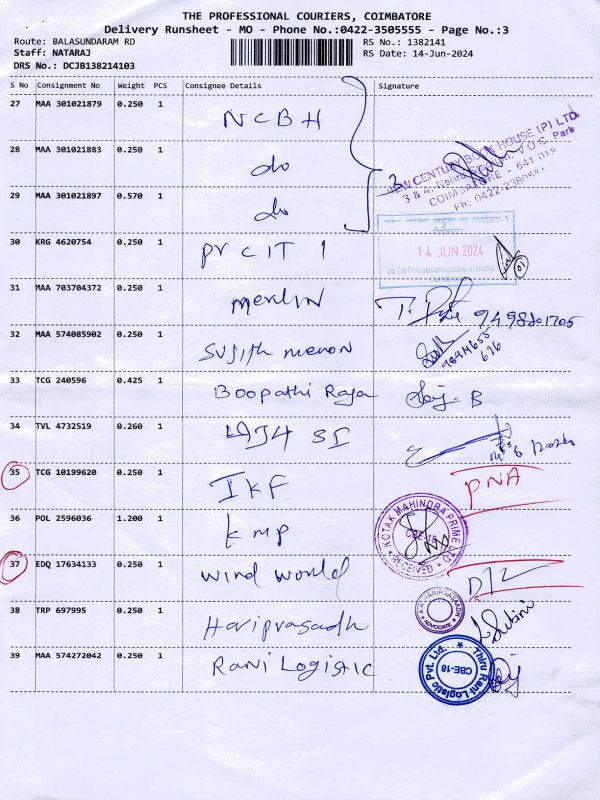 THE PROFESSIONAL COURIERS, COIMBATORE
Delivery Runsheet - MO - Phone No.:0422-3505555 - Page No.:3
Route: BALASUNDARAM RD RS No.: 1382141
Staff: NATARAJ RS Date: 14-Jun-2024
DRS No.: DCJB138214103
S No Consignment No Weight PCS Consignee Details Signature
27 MAA 301021879 0.250 1 NCBH
28 MAA 301021883 0.250 1 do
NEW CENTURY BOOK HOUSE (P) LTD
COIMBATORE - 641 018
29 MAA 301021897 0.570 1 do 3
30 KRG 4620754 0.250 1 Pr CIT 1
14 JUN 2024
01
31 MAA 703704372 0.250 1 merlin
32 MAA 574085902 0.250 1 Sujith menon
33 TCG 240596 0.425 1 Boopathi Raja
34 TVL 4732519 0.260 1
35 TCG 10199620 0.250 1 IKF PNA
36 POL 2596036 1.200 1 kmp
KOTAK MAHINDRA PRIME LTD
CBE-18
RECEIVED
37 EDQ 17634133 0.250 1 wind world D/L
38 TRP 697995 0.250 1 Hariprasadh
HARIPRASADH
ADVOCATE
39 MAA 574272042 0.250 1 Rani Logistic
Thiru Rani Logistic Pvt. Ltd.
CBE-18